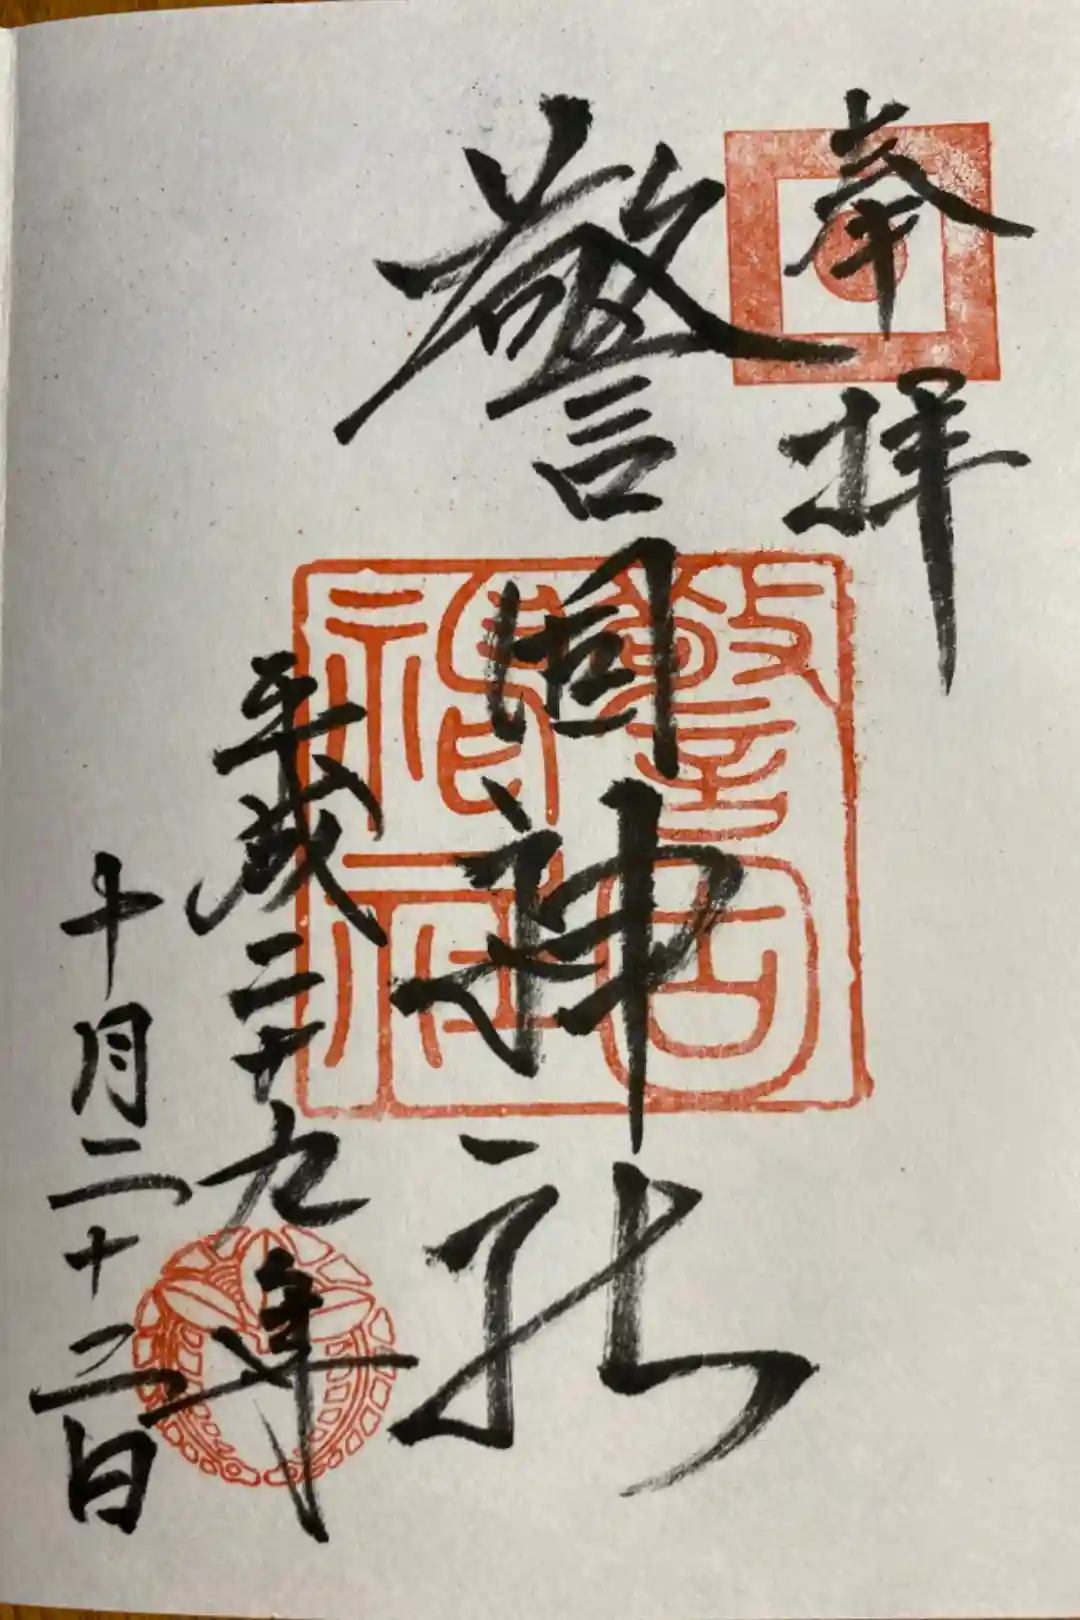 奉拝
警固神社
平成二十九年
十月二十三日
警固
神社